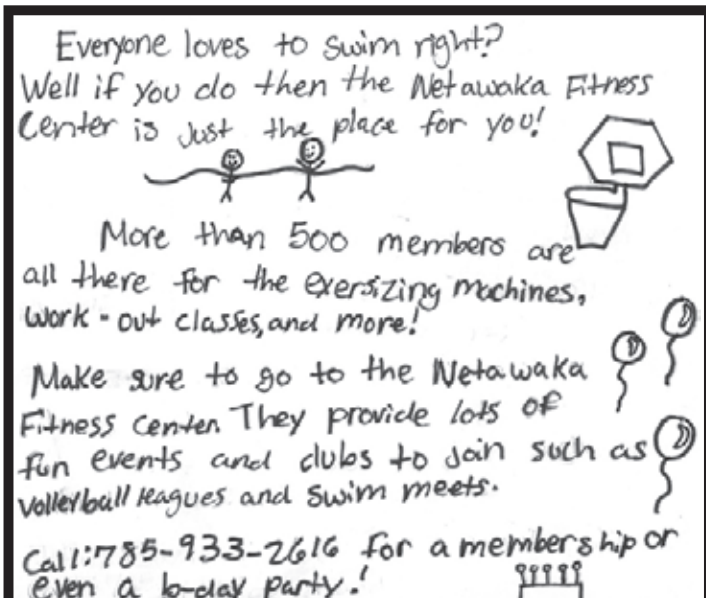 Everyone loves to swim right?
Well if you do then the Netawaka Fitness
Center is just the place for you!
More than 500 members are
all there for the exersizing machines,
work-out classes, and more!
Make sure to go to the Netawaka
Fitness Center. They provide lots of
fun events and clubs to join such as
volleyball leagues and swim meets.
Call: 785-933-2616 for a membership or
even a b-day party!